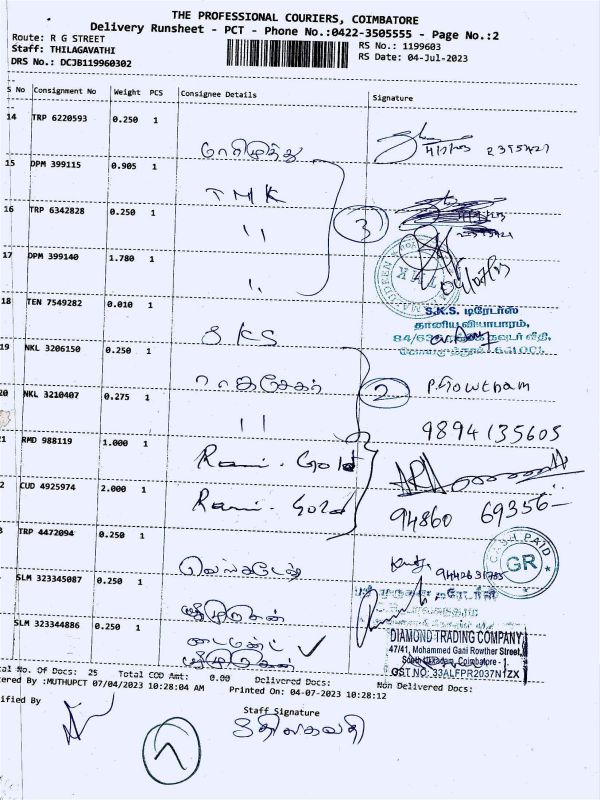 THE PROFESSIONAL COURIERS, COIMBATORE
Delivery Runsheet - PCT - Phone No.:0422-3505555 - Page No.:2
Route: R G STREET
Staff: THILAGAVATHI
DRS No.: DCJB119960302
RS No.: 1199603
RS Date: 04-Jul-2023
S No Consignment No Weight PCS Consignee Details Signature
14 TRP 6220593 0.250 1 மாரிமுத்து
15 DPM 399115 0.905 1 TMK
16 TRP 6342828 0.250 1 11 3
17 DPM 399140 1.780 1
18 TEN 7549282 0.010 1 SKS
S.K.S. டிரேடர்ஸ்
தானிய வியாபாரம்,
19 NKL 3206150 0.250 1 ராஜசேகர் 2 P.Gowtham
20 NKL 3210407 0.275 1 11 9894135605
21 RMD 988119 1.000 1 Rani. Gold
CUD 4925974 2.000 1 Rani. Gold 94860 69356
TRP 4472094 0.250 1 வெங்கடேஷ்
CASH PAID
GR
SLM 323345087 0.250 1 ஸ்ரீமுருகன்
SLM 323344886 0.250 1 டைமண்ட்
ஸ்ரீமுருகன்
DIAMOND TRADING COMPANY
47/41, Mohammed Gani Rowther Street,
South Ukkadam, Coimbatore -
GST NO: 33ALFPR2037N1ZX
tal No. Of Docs: 25 Total COD Amt: 0.00 Delivered Docs: Non Delivered Docs:
tered By :MUTHUPCT 07/04/2023 10:28:04 AM Printed On: 04-07-2023 10:28:12
ified By Staff Signature
திலகவதி
7